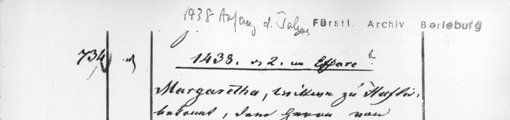 1438 Anfang d. Jahres Fürstl. Archiv Berleburg
734
1438.
Margaretha, Wittwe zu
bekennt, dem Herrn von